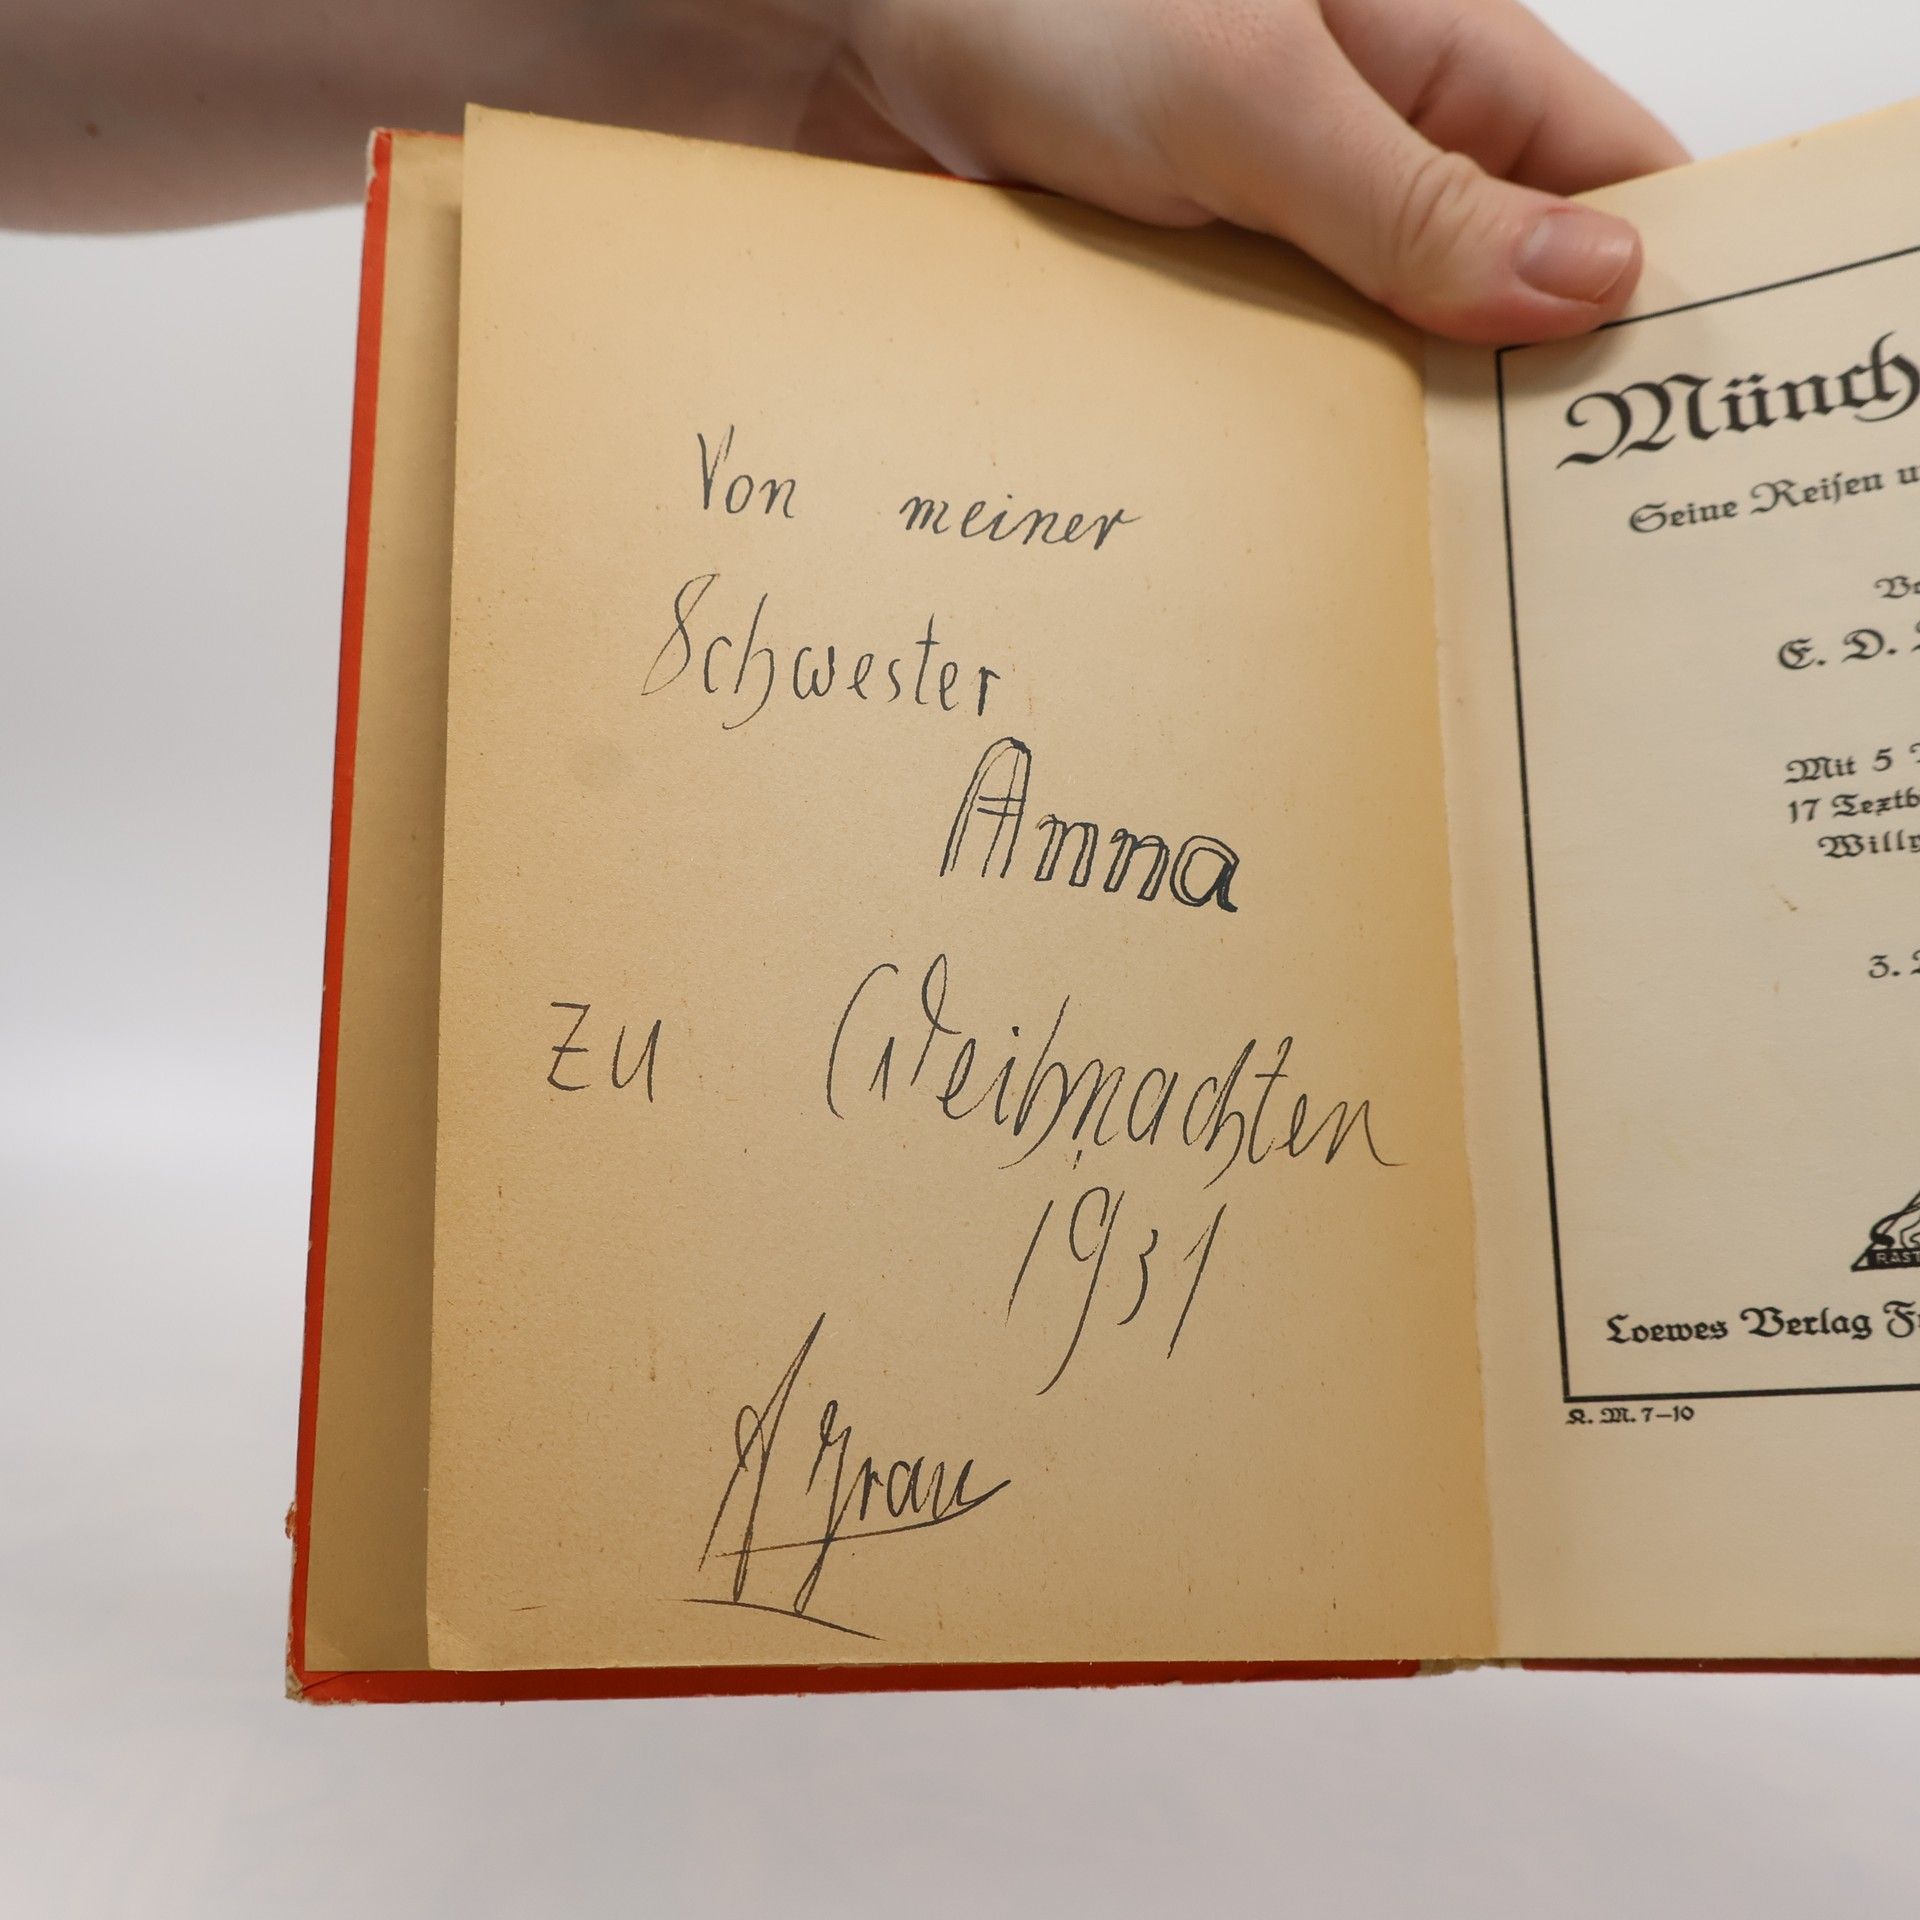 Von meiner
Schwester
Anna
zu Weihnachten
1931
A Grau
Münch
Seine Reisen u
Vo
E. D.
Mit 5
17 Textb
Willy
3.
RAST
Loewes Verlag F
K. M. 7–10